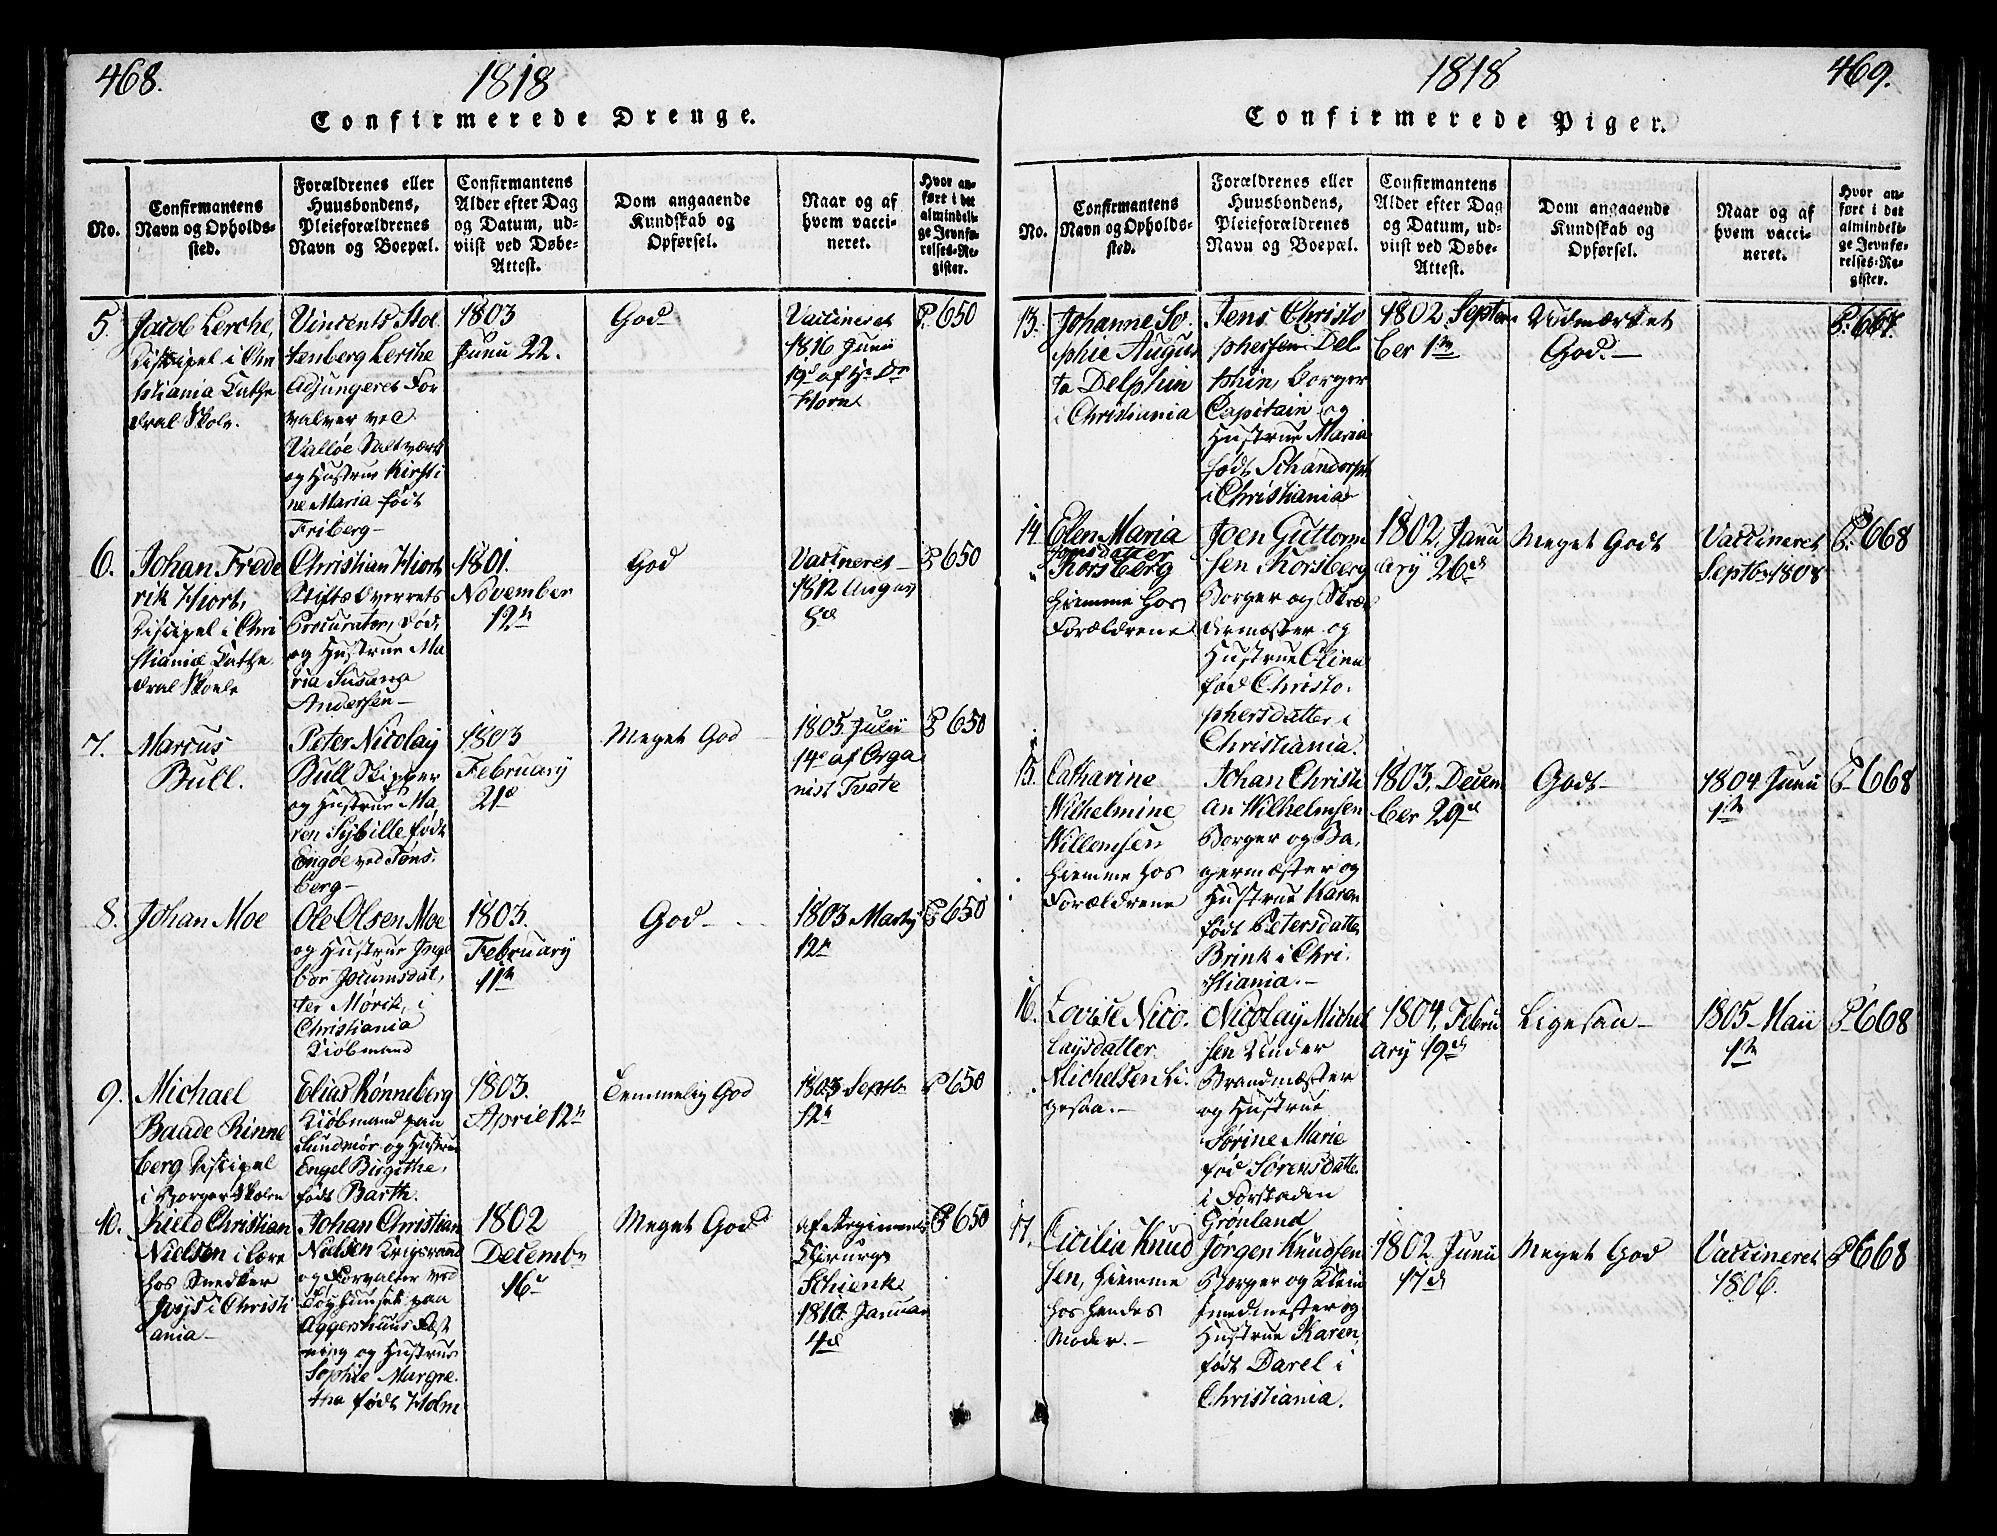 468.
1818
Confirmerede Drenge.
No.
Confirmantens
Navn og Opholds-
sted.
Forældrenes eller
Huusbondens,
Pleieforældrenes
Navn og Boepæl.
Confirmantens
Alder efter Dag
og Datum, ud-
viist ved Døbe-
Attest.
Dom angaaende
Kundskab og
Opførsel.
Naar og af
hvem vacci-
neret.
Hvor an-
ført i det
almindeli-
ge Jevnfø-
relses-Re-
gister.
5.
Jacob Lerche,
Discipel i Chri
stiania Cathe
dral Skole.
Vincents Stol
tenberg Lerche
Adjungeret For
valter ved
Valløe Saltværk
og Hustrue Kirsti
ne Maria født
Friberg-
1803
Junii 22.
God
Vaccineret
1816 Junii
19d af Hr Dr
Horn
P. 650
6.
Johan Frede
rik Hiort,
Discipel i Chri
stiania Cathe
dral Skole
Christian Hiort
Stifts Overrets
Procurator, død,
og Hustrue Ma
ria Susana
Andersen-
1801.
November
12te
God
Vaccineret-
1812 August
8de
P 650
7.
Marcus
Bull.
Peter Nicolay
Bull Skipper
og Hustrue Ma
ren Sybille født
Engøe ved Tøns.
berg-
1803
February
21d
Meget God
1805. Julii
14d af Orga
nist Tvete
P 650
8.
Johan Moe
Ole Olsen Moe
og Hustrue Inge
bor Jocumsdat,
ter Mørik, i
Christiania
Kiøbmand
1803.
February
11te
God-
1803 Marty
12te
P 650
9.
Michael
Baade Rinne
berg Discipel
i Borger Skolen
Elias Rønneberg
Kiøbmand paa
Sundmør og Hustrue
Engel Birgithe,
født Barth.
1803.
April 12te
Temmelig God
1803 Septb
12te
P 650
10.
Kield Christian
Nielsen i Lære
hos Snedker
i Christi
ania-
Johan Christian
Nielsen Krigsraad
og Forvalter ved
Tøyhuuset paa
Aggershuus Fæst
ning og Hustrue
Sophie Margre.
the født Holm
1802
Decembr
16d
Meget God
af Regiments
Chirurg
Schienk
1810 Januar
4de
P 650
1818
469.
Confirmerede Piger.
No.
Confirmantens
Navn og Opholds-
sted.
Forældrenes eller
Huusbondens,
Pleieforældrenes
Navn og Boepæl.
Confirmantens
Alder efter Dag
og Datum, ud-
viist ved Døbe-
Attest.
Dom angaaende
Kundskab og
Opførsel.
Naar og af
hvem vacci-
neret.
Hvor an-
ført i det
almindeli-
ge Jevnfø-
relses-Re-
gister.
13.
Johanne So.
phie Augus
ta Delphin
i Christiania
Jens Christo
phersen Del
phin, Borger
Capitain og
Hustrue Maria
født Schandorph
i Christiania-
1802 Septem
ber 1te
Udmærket
God.-
P. 667.
14.
Elen Maria
Jonsdatter
Korsberg
hiemme hos
Forældrene
Joen Guttorm
sen Korsberg
Borger og Skræ
dermæster og
Hustrue Olina
fød Christo.
phersdatter i
Christiania.
1802, Janu
ary 26d
Meget Godt
Vaccineret
Septbr 1808
P. 668
15.
Catharine
Wilhelmine
Willemsen
hiemme hos
Forældrene
Johan Christi
an Wilhelmsen
Borger og Ba,
germæster og
Hustrue Karen
født Petersdatter
Brink i Chri.
stiania.-
1803, Decem
ber 29d
Godt-
1804 Junii
1te
P 668
16.
Lovise Nico.
laysdatter
Michelsen Li.
gesaa.-
Nicolay Michel
sen Under
Brandmæster
og Hustrue
Sørine Marie
fød Sørensdatter
i Forstaden
Grønland
1804, Febru
ary 19d
Ligesaa-
1805 Maii
1te
P 668
17.
Cicilia Knud
sen, hiemme
hos hendes
Moder.-
Jørgen Knudsen
Borger og Klein
smedmester og
Hustrue Karen,
født Darel i
Christiania.
1802 Junii
17d
Meget God
Vaccineret
1806.
P 668